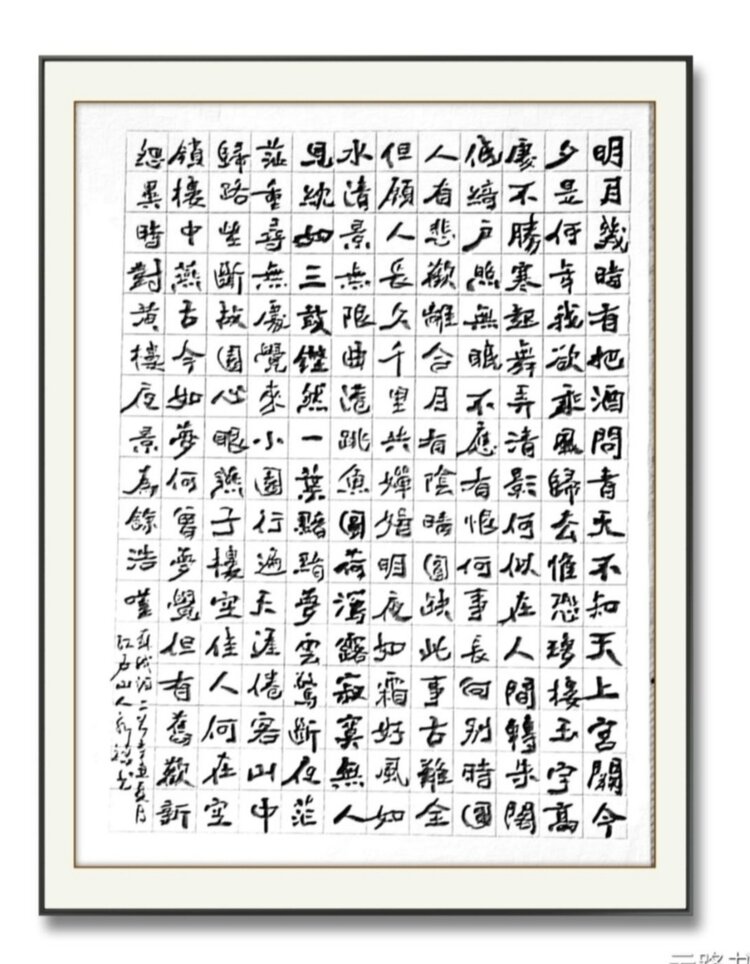 明月幾時有把酒問青天不知天上宮闕今
夕是何年我欲乘風歸去惟恐瓊樓玉宇高
處不勝寒起舞弄清影何似在人間轉朱閣
低綺戶照無眠不應有恨何事長向別時圓
人有悲歡離合月有陰晴圓缺此事古難全
但願人長久千里共嬋娟明夜如霜好風如
水清景無限曲港跳魚圓荷瀉露寂寞無人
見紞如三鼓鏗然一葉黯黯夢雲驚斷夜茫
茫重尋無處覺來小園行遍天涯倦客山中
歸路望斷故園心眼燕子樓空佳人何在空
鎖樓中燕古今如夢何曾夢覺但有舊歡新
怨異時對黃樓夜景為餘浩嘆
蘇軾詞二首辛丑夏月
石山人